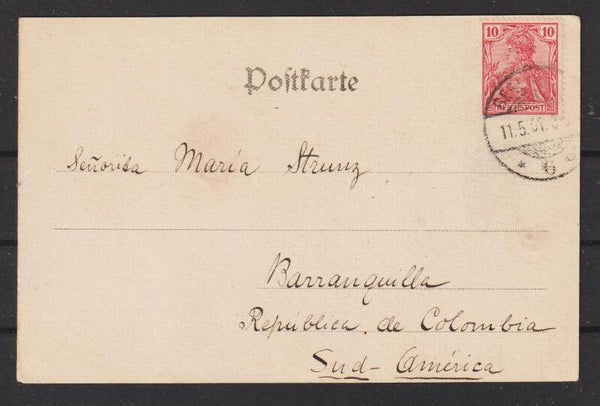 10 10
REICHSPOST
Postkarte
11.5.01.
* b *
Señorita María Strunz
Barranquilla
República de Colombia
Sud-América